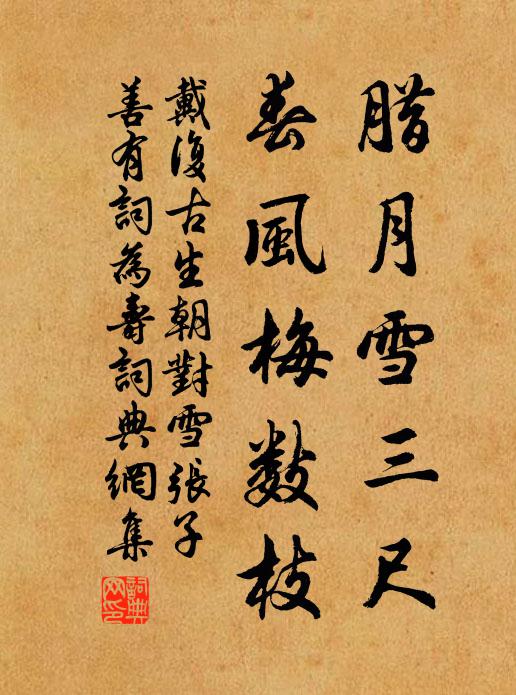 腊月雪三尺
春風梅数枝
戴復古生朝對雪張子
善有詞為壽詞典網集
詞典網印